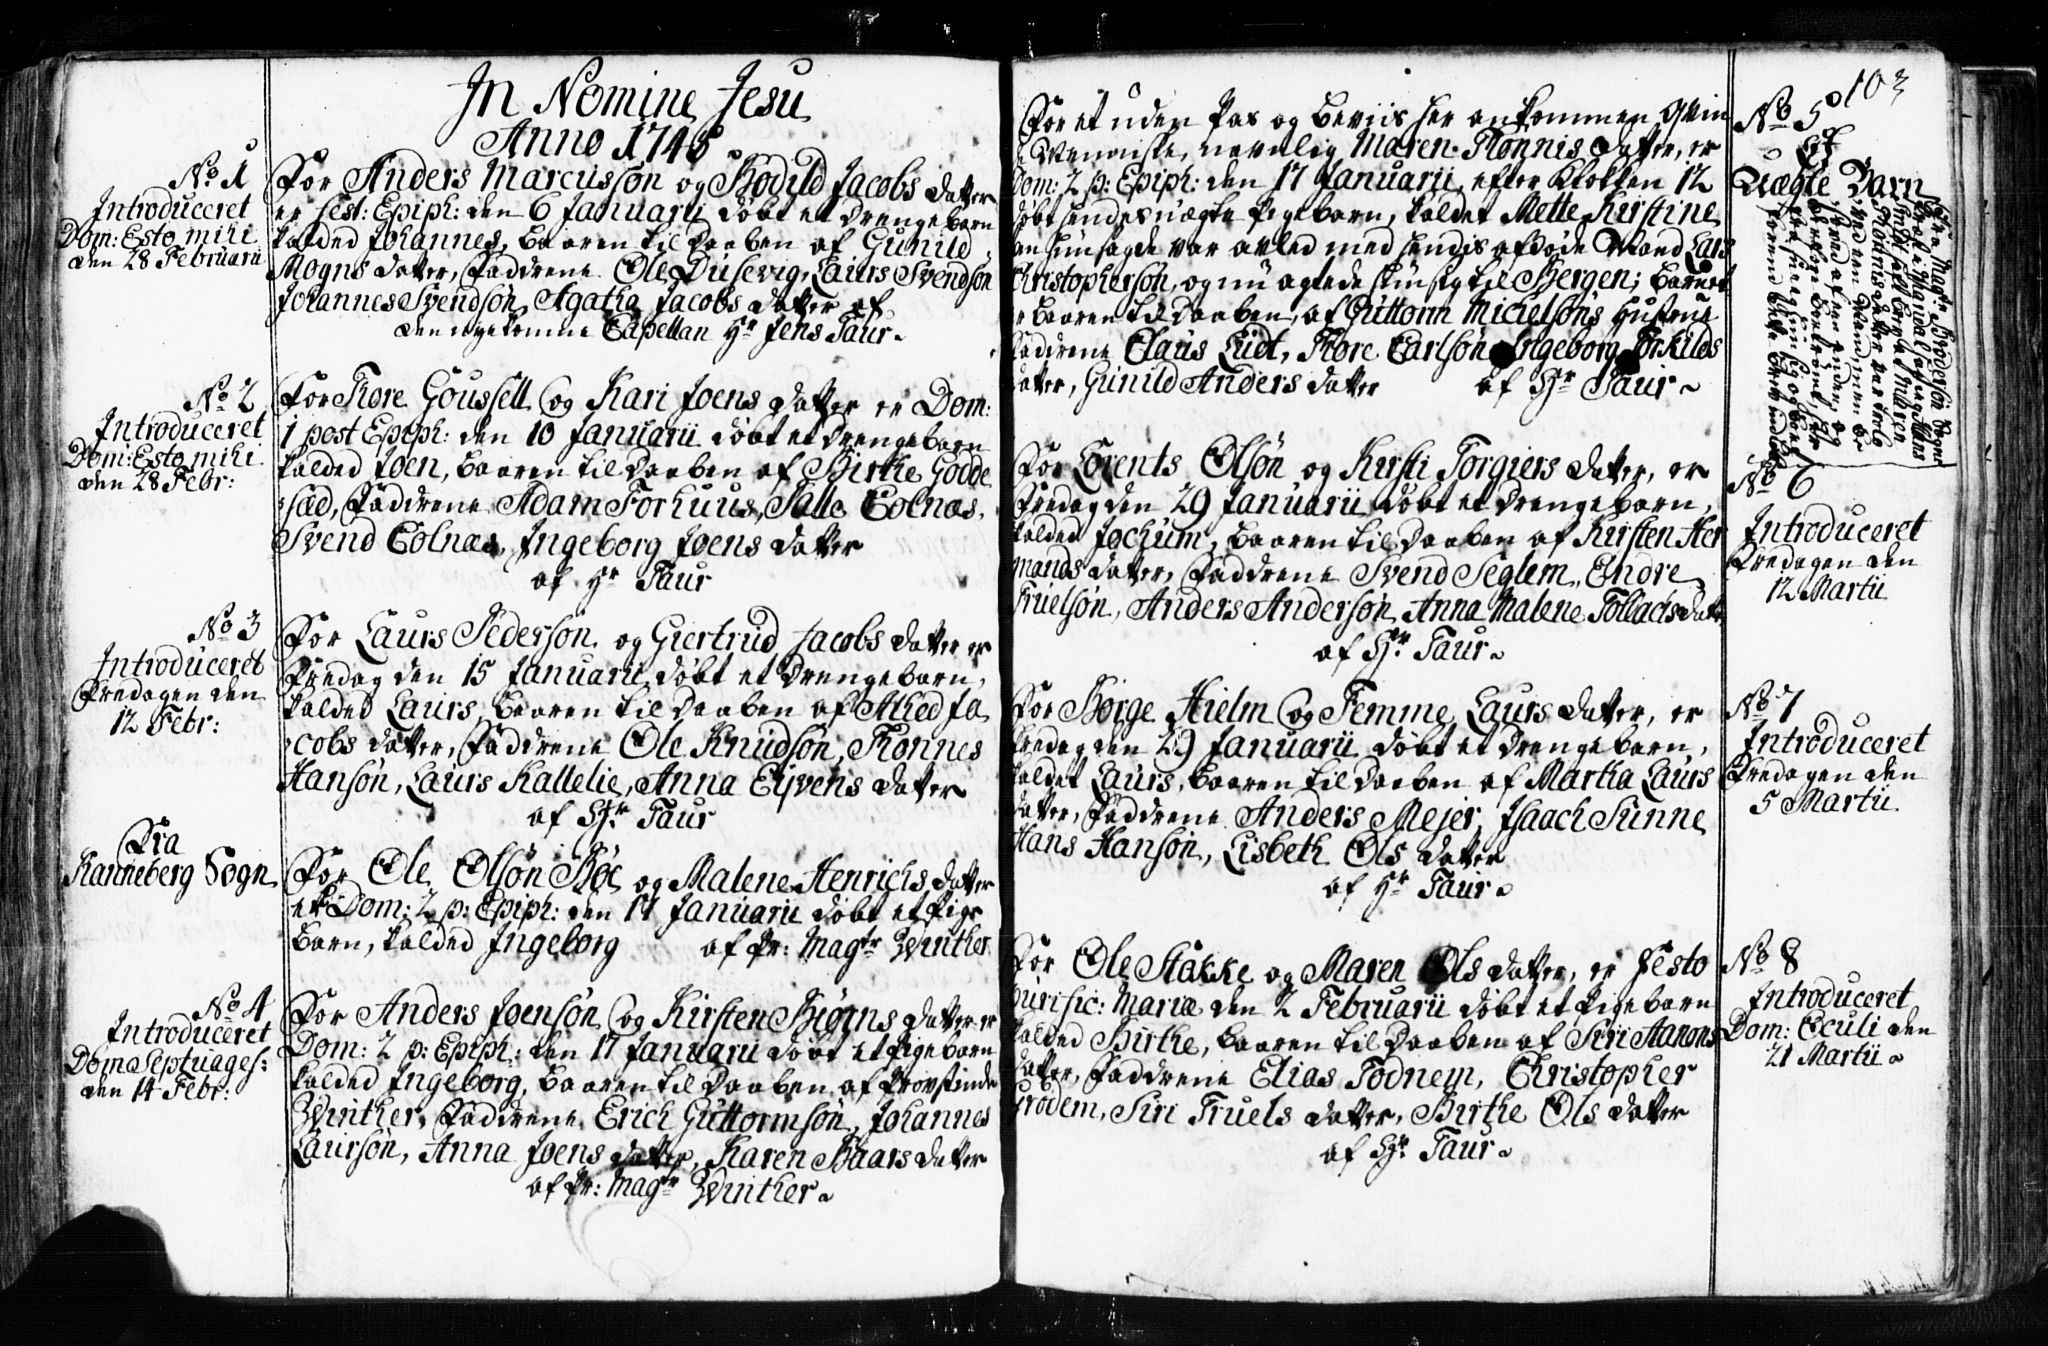 In Nomine Jesu
Anno 1745
No 1
Introduceret
Dom: Esto mihi
den 28 Februarii
For Anders Marcussøn og Bodild Jacobs datter
er Fest: Epiph: den 6 Januarii døbt et drengebarn
kalded Johannes, baaren til daaben af Gunild
Mogns datter, Faddrene Ole Dusevig, Laurs Svendsøn
Johannes Svendsøn, Agatha Jacobs datter af
den Capellan Hr Jens Taur
No 2
Introduceret
Dom: Esto mihi
den 28 Febr:
For Tore Goussell og Kari Joens datter er Dom:
1 post Epiph: den 10 Januarii døbt et drengebarn
kalded Joen, baaren til daaben af Birthe Godde
sæd, Faddrene Adam Forhuus, Salle Colnæs,
Svend Colnæs, Ingeborg Joens datter
af Hr Taur
No 3
Introduceret
Fredagen den
12 Febr:
For Laurs Pedersøn og Giertrud Jacobs datter er
Fredag den 15 Januarii døbt et drengebarn,
kalded Laurs, baaren til daaben af Athed Ja
cobs datter, Faddrene Ole Knudsøn, Tønnes
Hansøn, Laurs Kallelie, Anna Ejvens datter
af Hr Taur
Fra
Ranneberg Sogn
For Ole Olsøn Bøe og Malene Henrichs datter
er Dom: 2 p: Epiph: den 17 Januarii døbt et Pige
barn, kalded Ingeborg af Pr: Magtr Winther
No 4
Introduceret
Dom Septuages:
den 14 Febr:
For Anders Joensøn og Kirsten Biørns datter er
Dom: 2 p: Epiph: den 17 Januarii døbt et Pigebarn
kalded Ingeborg, baaren til daaben af Provstinde
Winther, Faddrene Erich Guttormsøn, Johannes
Laursøn, Anna Joens datter, Karen Baars datter
af Pr: Magtr Winther
103
For et uden Pas og beviis her ankommen Qvin
de Menniske, navnlig Maren Tønnis datter, er
Dom: 2 p: Epiph: den 17 Januarii, efter Klokken 12
døbt hendes uægte Pigebarn, kaldet Mette Kirstine
som hun sagde var avled med hendis afdøde Mand Lars
Christophersøn, og nu agtede hun sig til Bergen; barnet
er baaren til daaben af Guttorm Michelsøns Hustrue
Faddrene Claus Lidt, Tore Carlsøn, Ingeborg Torkilds
datter, Gunild Anders datter af Hr Taur
No 5
Et
Uægte Barn
For Lorents Olsøn og Kirsti Torgiers datter, er
Fredag den 29 Januarii døbt et drengebarn,
kalded Jochum, baaren til daaben af Kirsten Her
mands datter, Faddrene Svend Seglem, Endre
Truelsøn, Anders Andersøn, Anna Malene Tollachs datter
af Hr Taur
No 6
Introduceret
Fredagen den
12 Martii
For Børge Hielm og Femme Laurs datter, er
Fredag den 29 Januarii døbt et drengebarn,
kaldet Laurs, baaren til daaben af Martha Laurs
datter, Faddrene Anders Mejer, Isaach Sunne
Hans Hansøn, Lisbeth Ols datter
af Hr Taur
No 7
Introduceret
Fredagen den
5 Martii
For Ole Stakke og Maren Ols datter, er Festo
Purific: Mariæ den 2 Februarii døbt et Pigebarn
kalded Birthe, baaren til daaben af Siri Aanons
datter, Faddrene Elias Todnem, Christopher
Grødem, Siri Truels datter, Birthe Ols datter
af Hr Taur
No 8
Introduceret
Dom: Oculi den
21 Martii